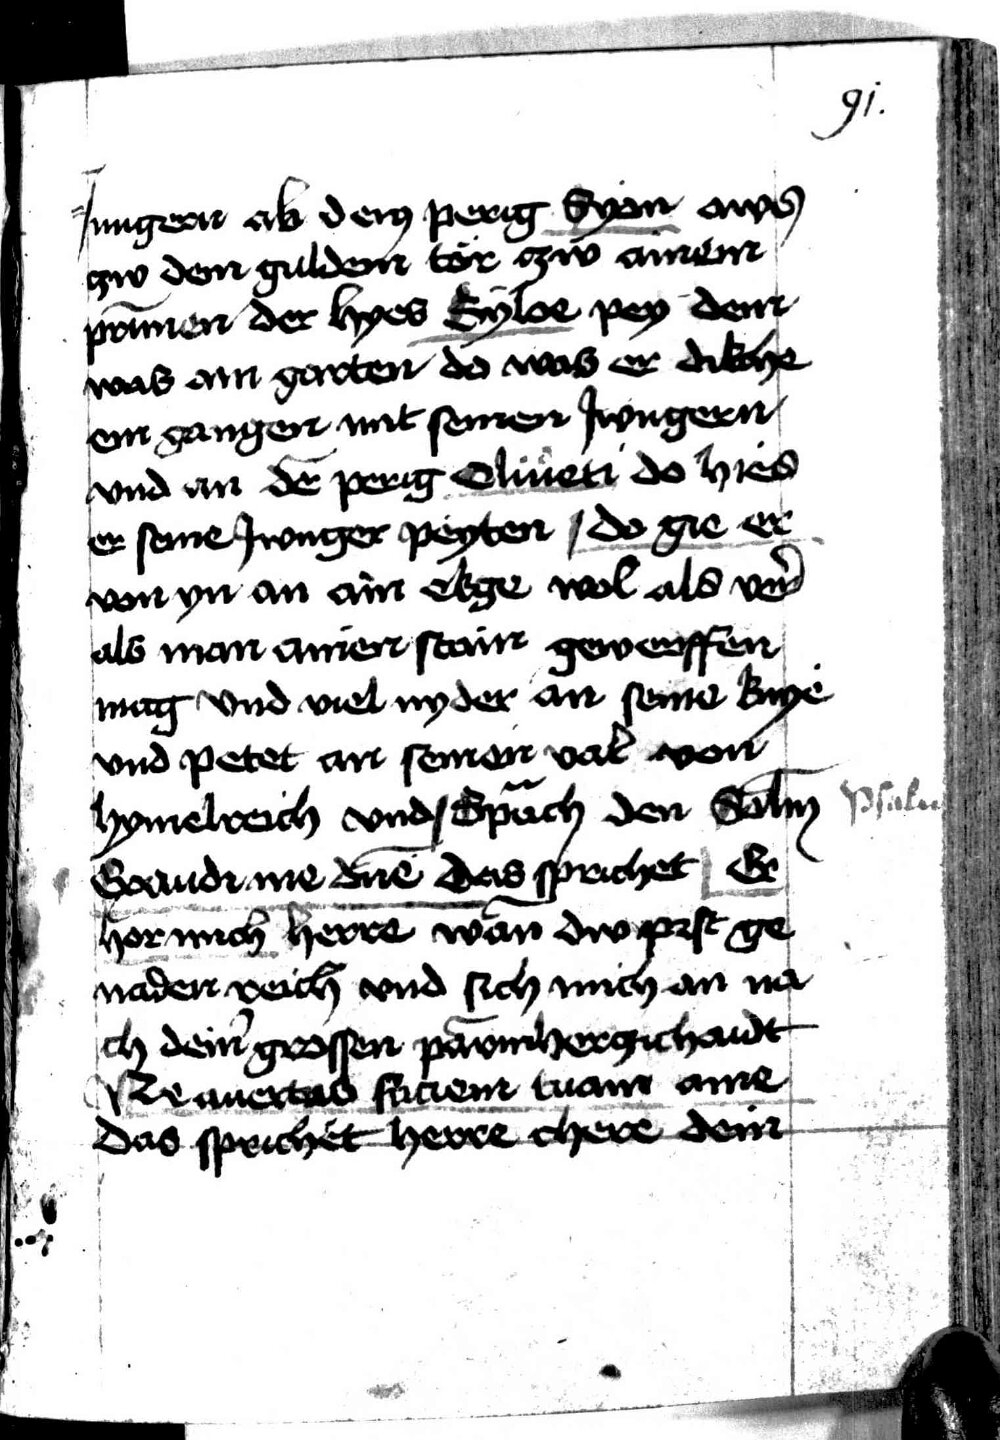 91.
Jungern ab dem perig Syon aws
czw dem guldein tör czw ainem
prūnen der hyes Syloe pey dem
was ain garten do was er dikche
ein gangen mit seinen Jwngern
vnd an dē perig Oliueti do hies
er seine Jwnger peyten / do gie er
von yn an ain ekge wol als ver
als man ainen stain gewerffen
mag vnd viel nyder an seine knye
vnd petet an seinen vat̄ von
hymelreich vnd / Sprach den Salm
Psalm
Exaudi me dn̄e Das sprichet Er
hor mich herre wān dw pist ge
naden reich vnd sich mich an na
ch dein̄ grossen pārmherczichaidt
Ne auertas faciem tuam ame
Das sprichet herre chere dein